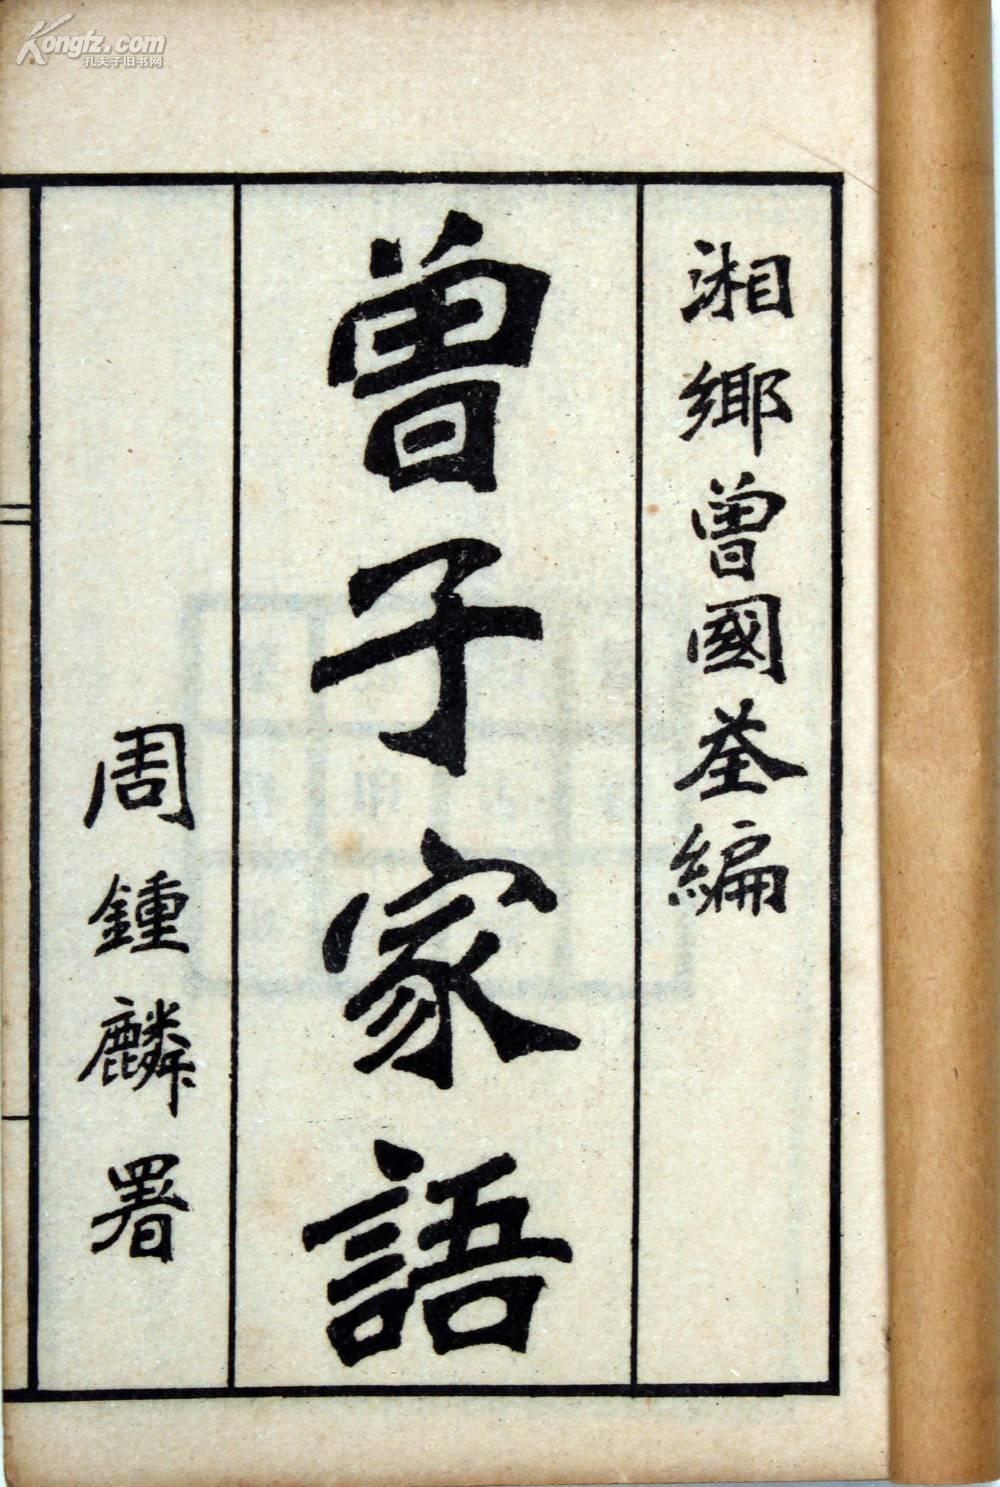 Kongfz.com
孔夫子旧书网
湘鄉曾國荃編
曾子家語
周鍾麟署